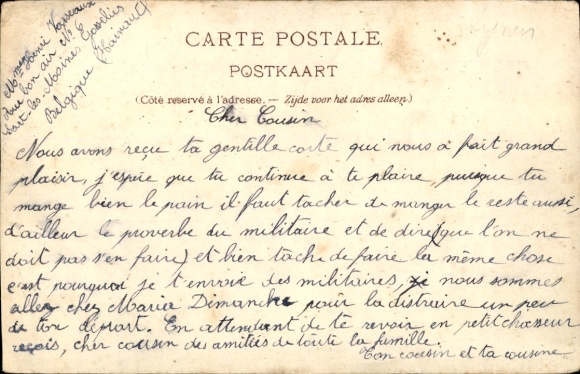 Mme Henri Vasseaux
Rue bon air No 6
Sart-les-Moines Gosselies
Belgique (Hainaut)
CARTE POSTALE
POSTKAART
(Côté reservé à l'adresse. — Zijde voor het adres alleen.)
Cher Cousin
Nous avons reçu ta gentille carte qui nous à fait grand
plaisir, j'espère que tu continue à te plaire, puisque tu
mange bien le pain il faut tacher de manger le reste aussi,
d'ailleur le proverbe du militaire et de dire (que l'on ne
doit pas s'en faire) et bien tache de faire la même chose
c'est pourquoi je t'envoie des militaires, nous sommes
allez chez Maria Dimanche pour la distraire un peu
de ton départ. En attendant de te revoir en petit chasseur
reçois, cher cousin des amitiés de toute la famille.
Ton cousin et ta cousine